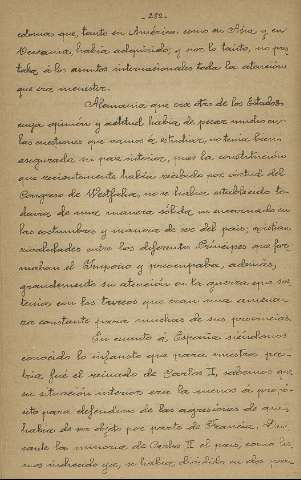 - 232 -
colonias que, tanto en América como en Asia y en
Oceanía, había adquirido, y por lo tanto, no pres
taba á los asuntos internacionales toda la atención
que era menester.
Alemania que era otro de los Estados
cuya opinión y actitud había de pesar mucho en
las cuestiones que vamos á estudiar, no tenía bien
asegurada su paz interior, pues la constitución
que recientemente había recibido por virtud del
Congreso de Westfalia, no se había establecido to-
davía de una manera sólida, ni encarnado en
las costumbres y manera de ser del país; existían
rivalidades entre los diferentes Príncipes que for-
maban el Imperio y preocupaba, además,
grandemente su atención en la guerra que sos
tenían con los turcos que eran una amena-
za constante para muchas de sus provincias.
En cuanto á España siéndonos
conocido lo infausto que para nuestra pa-
tria fué el reinado de Carlos II, sabemos que
su situación interior era la menos á propó-
sito para defenderse de las agresiones de que
había de ser objeto por parte de Francia. Du-
rante la minoría de Carlos II el país, como he-
mos indicado ya, se había dividido en dos par-